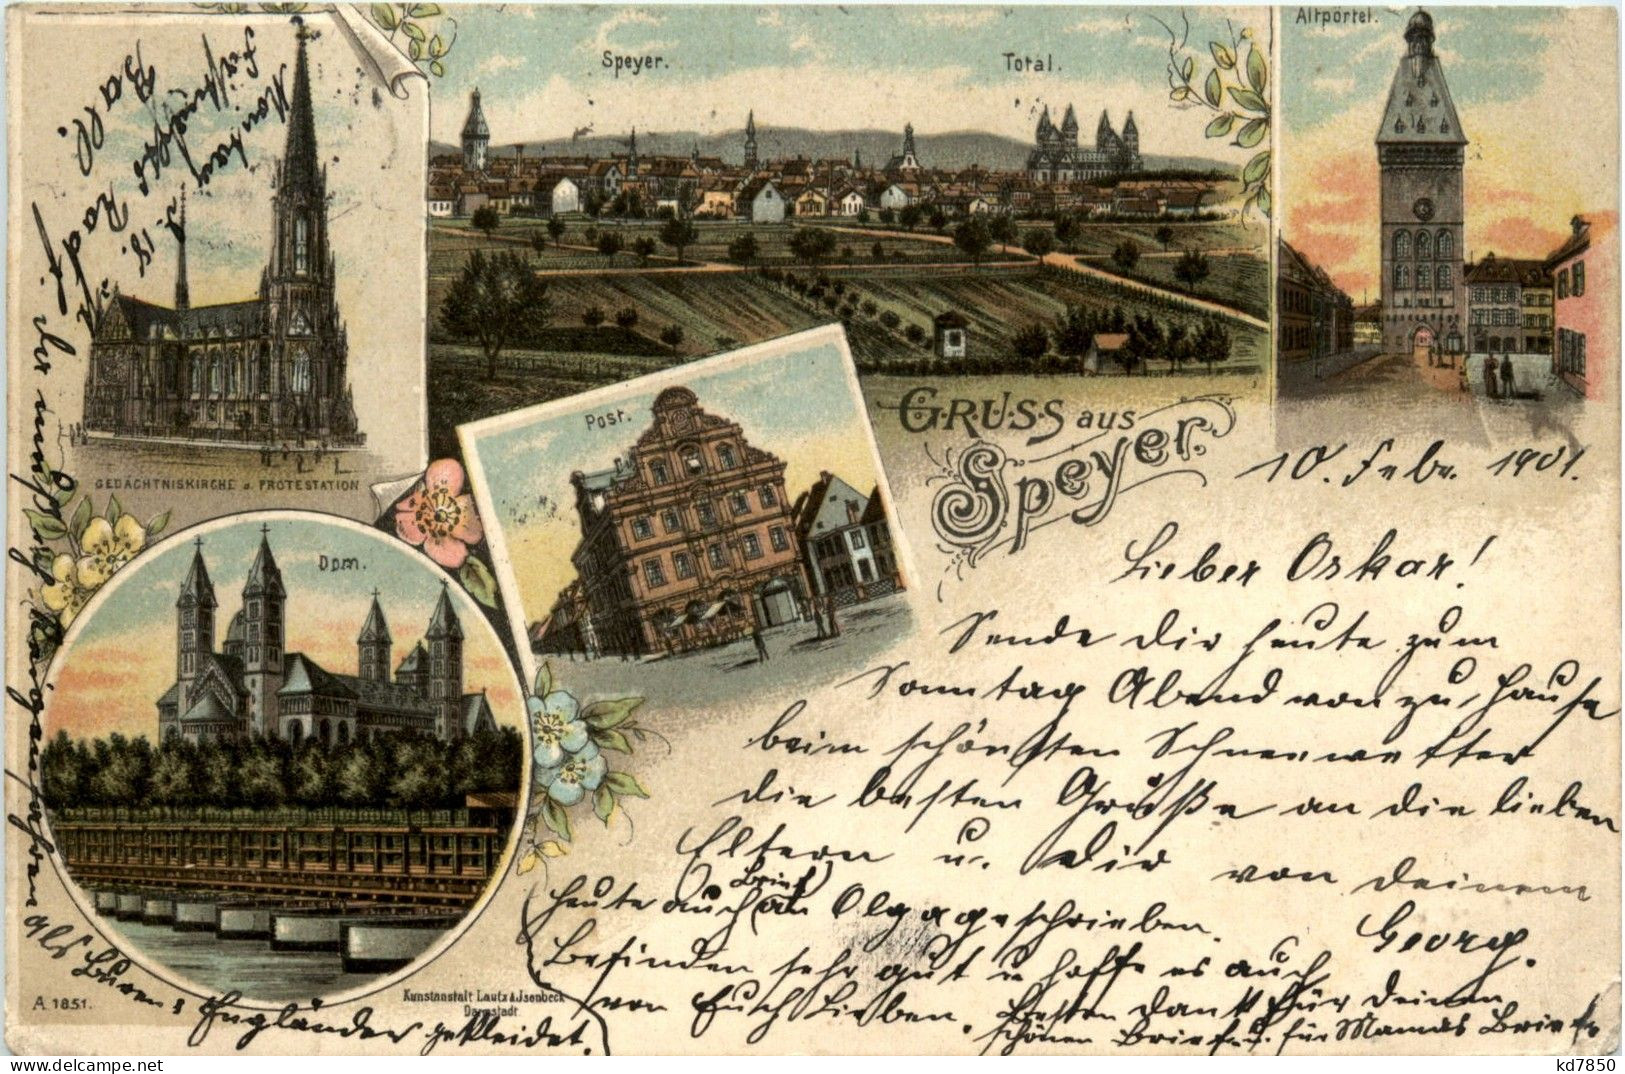 Speyer.
Total.
Altpörtel.
GEDÄCHTNISKIRCHE d. PROTESTATION
Post.
Dom.
GRUSS aus
Speyer.
10. Febr. 1901.
Lieber Oskar!
Sende Dir heute zum
Sonntag Abend von zu Hause
beim schönsten Schneewetter
die besten Grüße an die lieben
Eltern u. Dir von Deinem
Georg.
heute auch Brief an Olga geschrieben.
Befinden sehr gut u hoffe es auch
von Euch Lieben. Besten Dank für Deinen
schönen Brief u. für Mamas Brief
Montag
d. 18.
Radf
Ball.
der
als Buren &
Engländer gekleidet.
A. 1851.
Kunstanstalt Lautz & Jsenbeck
Darmstadt.
kd7850